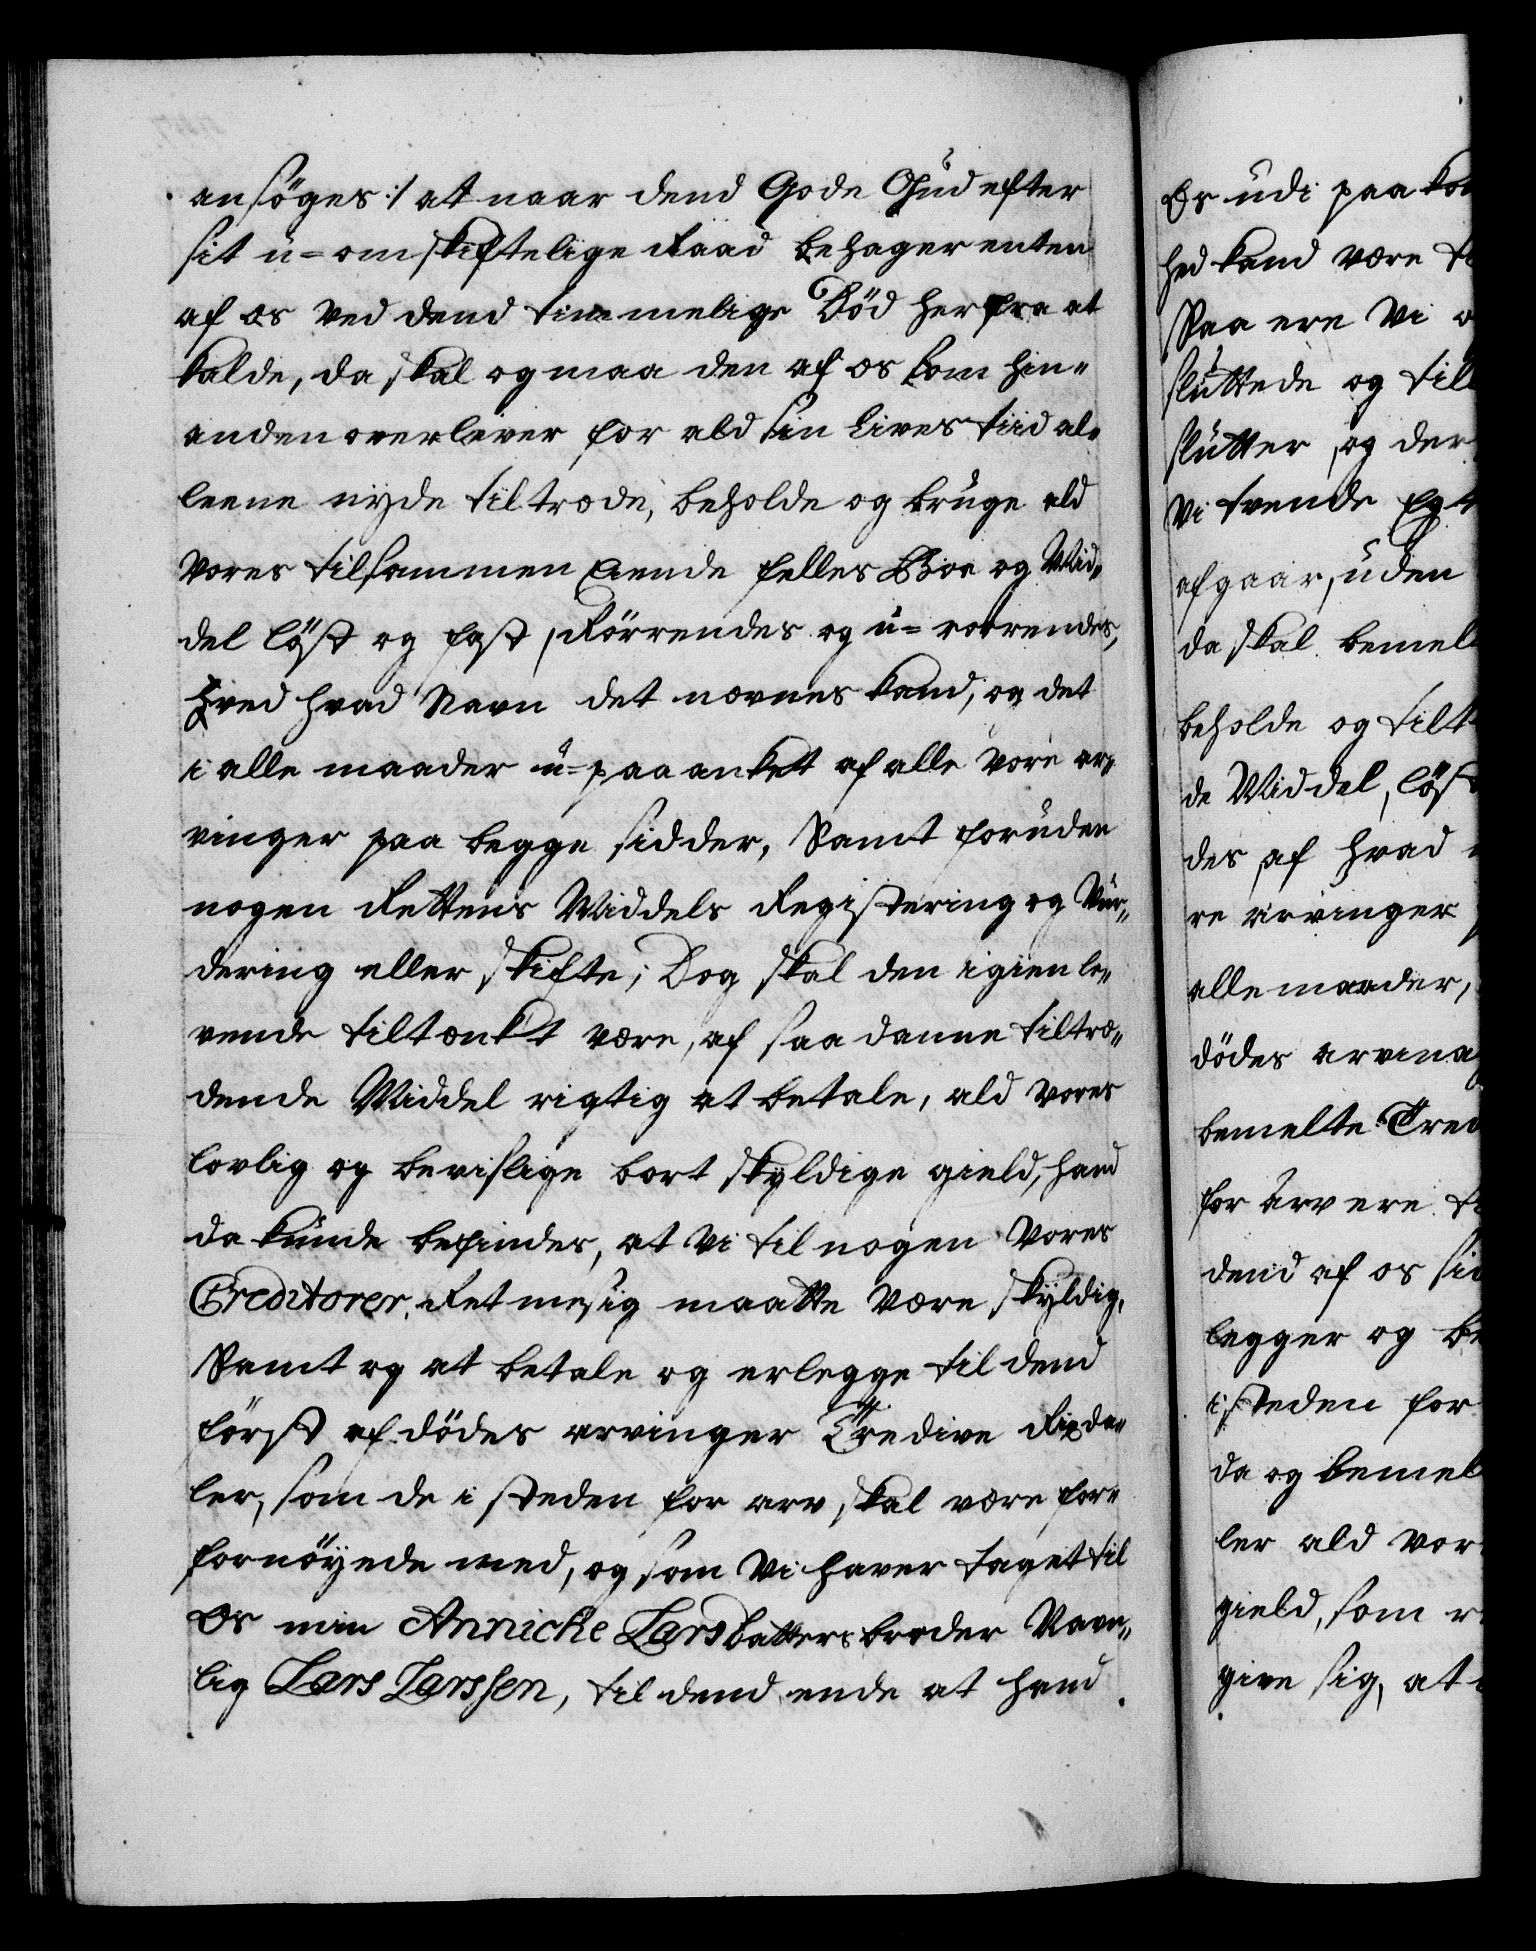 ansöges :/ at naar dend Gode Gud efter
sit u=omskiftelige Raad behager enten
af os ved dend timmelige Död her fra at
kalde, da skal og maa den af os som hin-
anden overlever for ald sin Livs tiid al-
leene nyde tiltræde, beholde og bruge ald
vores tilsammen Eiende felles Boe og Mid-
del löst og fast, Rörrendes og u=rörrendes,
Hved hvad Navn det nævnes kand, og det
i alle maader u=paa anket af alle vore ar-
vinger paa begge sidder, Samt foruden
nogen Rettens Middels Registering og Vur-
dering eller skifte; Dog skal den igien le-
vende tiltænkt være, af saadanne tiltræ-
dende Middel rigtig at betale, ald vores
lovlig og bevislige bort skyldige gield, hand
da kunde befindes, at vi til nogen vores
Creditorer. Retmesig maatte være skyldig,
Samt og at betale og erlegge til dend
först af dödes arvinger Tredive Rixda-
ler, som de i steden for arv skal være for-
fornöyede med, og som vi haver taget til
Os min Annicke Larsdatters broder Navn-
lig Lars Larssen, til dend ende at hand
Os udi paa kom
hed kand være
Saa ere vi
sluttede og till
slutter, og der
vi tvende Egt
afgaar, uden
da skal bemel
beholde og tilt
de Middel, löst
des af hvad
re arvinger
alle maader,
dödes arving
bemelte Tred
for arv ere
dend af os sid
legger og be
isteden for
da og bemel
ler ald vor
gield, som
give sig, at